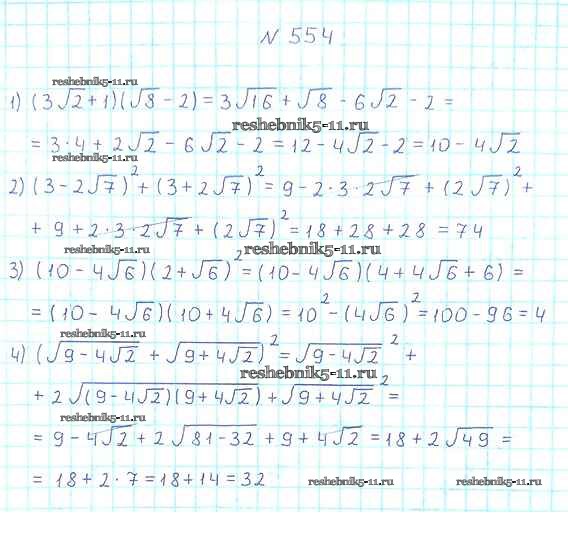 N 554
reshebnik5-11.ru
1) (3√2+1)(√8-2) = 3√16 + √8 - 6√2 - 2 =
reshebnik5-11.ru
= 3·4 + 2√2 - 6√2 - 2 = 12 - 4√2 - 2 = 10 - 4√2
reshebnik5-11.ru
2) (3-2√7)² + (3+2√7)² = 9 - 2·3·2√7 + (2√7)² +
+ 9 + 2·3·2√7 + (2√7)² = 18 + 28 + 28 = 74
reshebnik5-11.ru reshebnik5-11.ru
3) (10-4√6)(2+√6)² = (10-4√6)(4+4√6+6) =
= (10-4√6)(10+4√6) = 10² - (4√6)² = 100 - 96 = 4
reshebnik5-11.ru
4) (√(9-4√2) + √(9+4√2))² = √(9-4√2)² +
reshebnik5-11.ru
+ 2√((9-4√2)(9+4√2)) + √(9+4√2)² =
reshebnik5-11.ru
= 9 - 4√2 + 2√(81-32) + 9 + 4√2 = 18 + 2√49 =
= 18 + 2·7 = 18 + 14 = 32
reshebnik5-11.ru reshebnik5-11.ru